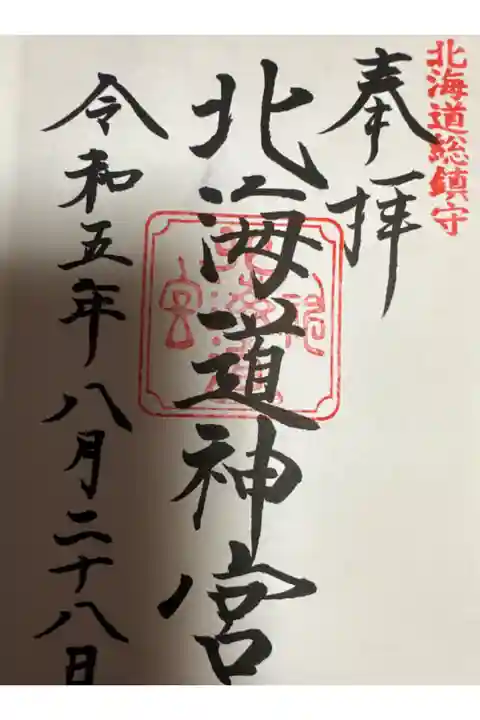 北海道総鎮守
奉拝
北海道神宮
令和五年八月二十八日